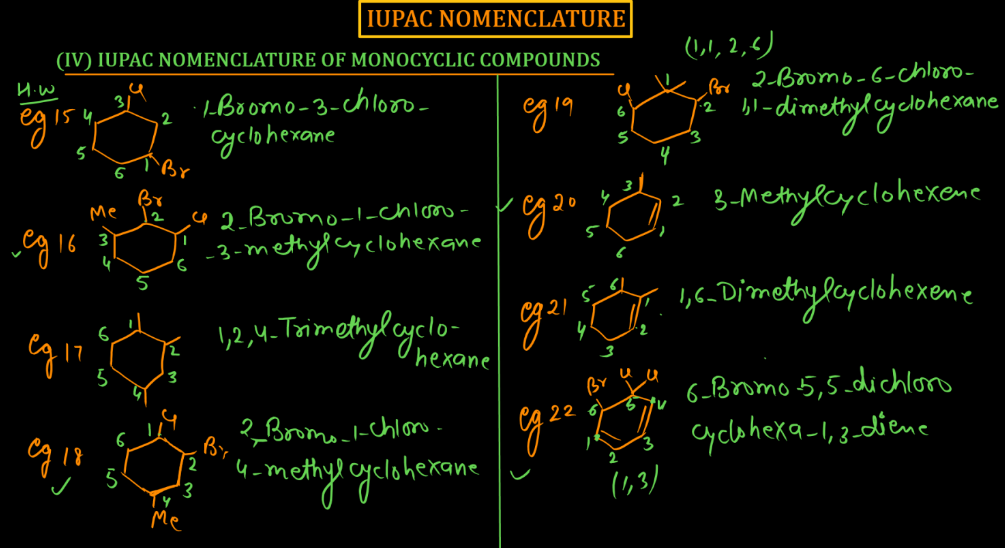 IUPAC NOMENCLATURE
(IV) IUPAC NOMENCLATURE OF MONOCYCLIC COMPOUNDS
H.W
eg 15
Cl
3
4
2
5
6
1
Br
1-Bromo-3-chloro-
cyclohexane
eg 16
Br
Me
2
Cl
3
1
4
6
5
2-Bromo-1-chloro-
-3-methylcyclohexane
eg 17
6
1
2
5
3
4
1,2,4-Trimethylcyclo-
hexane
eg 18
Cl
1
6
Br
2
5
3
4
Me
2-Bromo-1-chloro-
4-methylcyclohexane
(1,1,2,6)
eg 19
Cl
1
Br
6
2
5
3
4
2-Bromo-6-chloro-
1,1-dimethylcyclohexane
eg 20
3
4
2
5
1
6
3-Methylcyclohexene
eg 21
5
6
1
4
2
3
1,6-Dimethylcyclohexene
eg 22
Br
Cl
Cl
6
5
4
1
3
2
(1,3)
6-Bromo-5,5-dichloro
cyclohexa-1,3-diene